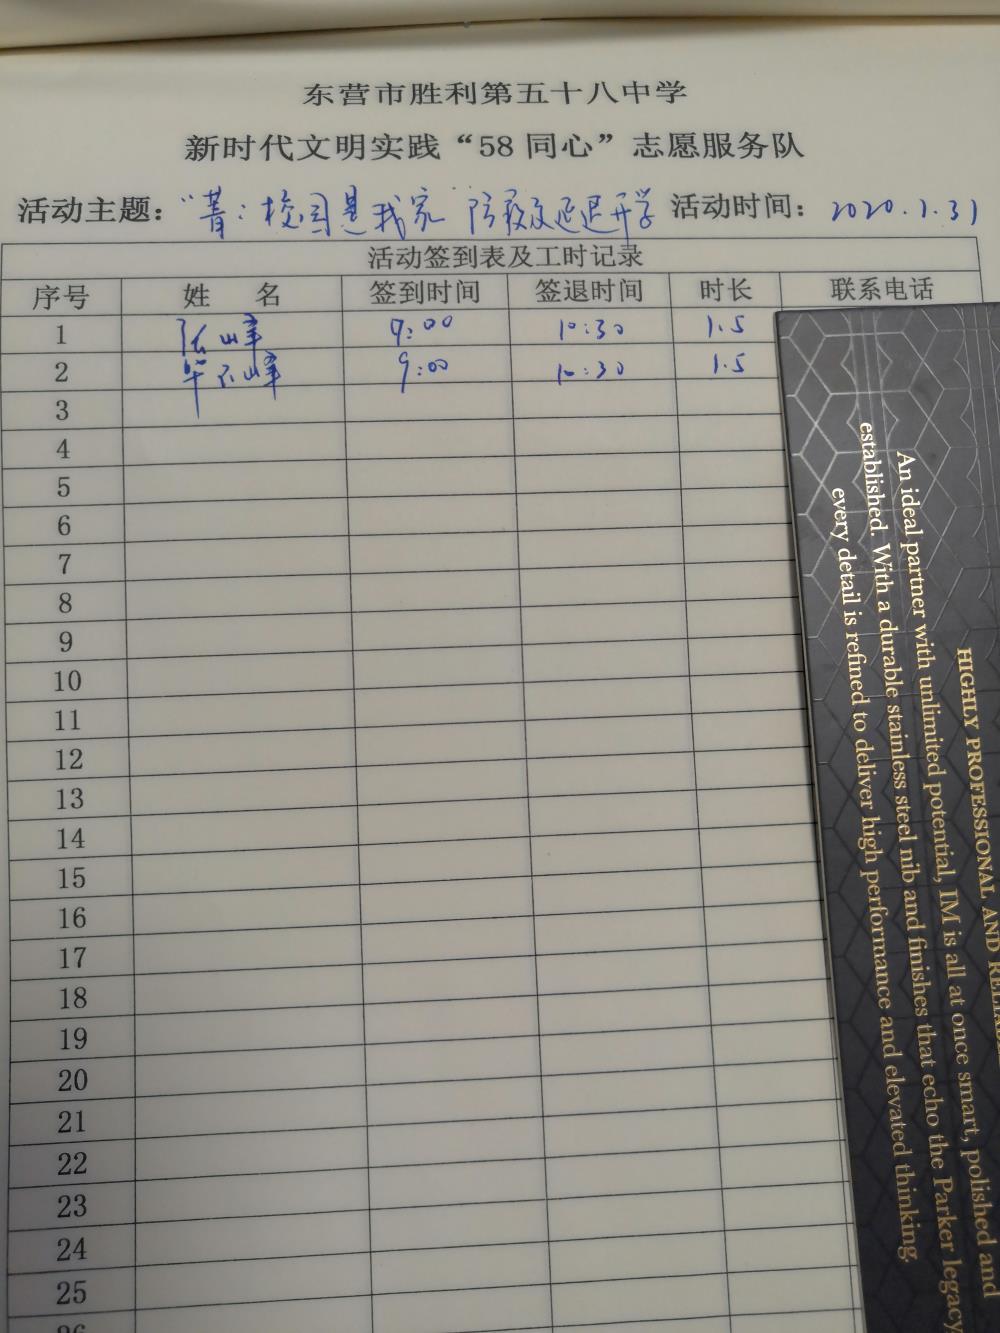 东营市胜利第五十八中学
新时代文明实践“58 同心”志愿服务队
活动主题： 校园是我家 防疫及延迟开学 活动时间： 2020.1.31
活动签到表及工时记录
序号 姓 名 签到时间 签退时间 时长 联系电话
1 张山峰 9:00 10:30 1.5
2 毕玉峰 9:00 10:30 1.5
3
4
5
6
7
8
9
10
11
12
13
14
15
16
17
18
19
20
21
22
23
24
25
26
HIGHLY PROFESSIONAL AND
An ideal partner with unlimited potential, IM is all at once smart, polished and
established. With a durable stainless steel nib and finishes that echo the Parker legacy
every detail is refined to deliver high performance and elevated thinking.